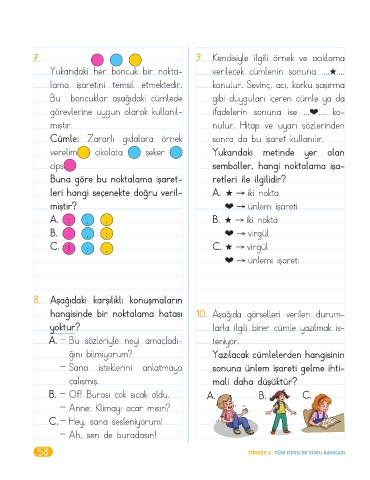 7.
Yukarıdaki her boncuk bir nokta-
lama işaretini temsil etmektedir.
Bu boncuklar aşağıdaki cümlede
görevlerine uygun olarak kullanıl-
mıştır.
Cümle: Zararlı gıdalara örnek
verelim çikolata şeker
cips
Buna göre bu noktalama işaret-
leri hangi seçenekte doğru veril-
miştir?
A.
B.
C.
8. Aşağıdaki karşılıklı konuşmaların
hangisinde bir noktalama hatası
yoktur?
A. – Bu sözleriyle neyi amaçladı-
ğını bilmiyorum?
– Sana isteklerini anlatmaya
çalışmış.
B. – Of! Burası çok sıcak oldu.
– Anne: Klimayı açar mısın?
C. – Hey, sana sesleniyorum!
– Ah, sen de buradasın!
58
9. Kendisiyle ilgili örnek ve açıklama
verilecek cümlenin sonuna ....★....
konulur. Sevinç, acı, korku şaşırma
gibi duyguları içeren cümle ya da
ifadelerin sonuna ise ...❤.... ko-
nulur. Hitap ve uyarı sözlerinden
sonra da bu işaret kullanılır.
Yukarıdaki metinde yer alan
semboller, hangi noktalama işa-
retleri ile ilgilidir?
A. ★ → iki nokta
❤ → ünlem işareti
B. ★ → iki nokta
❤ → virgül
C. ★ → virgül
❤ → ünlemi işareti
10. Aşağıda görselleri verilen durum-
larla ilgili birer cümle yazılmak is-
teniyor.
Yazılacak cümlelerden hangisinin
sonuna ünlem işareti gelme ihti-
mali daha düşüktür?
A. B. C.
TÜRKÇE 2 - TÜM DERSLER SORU BANKASI